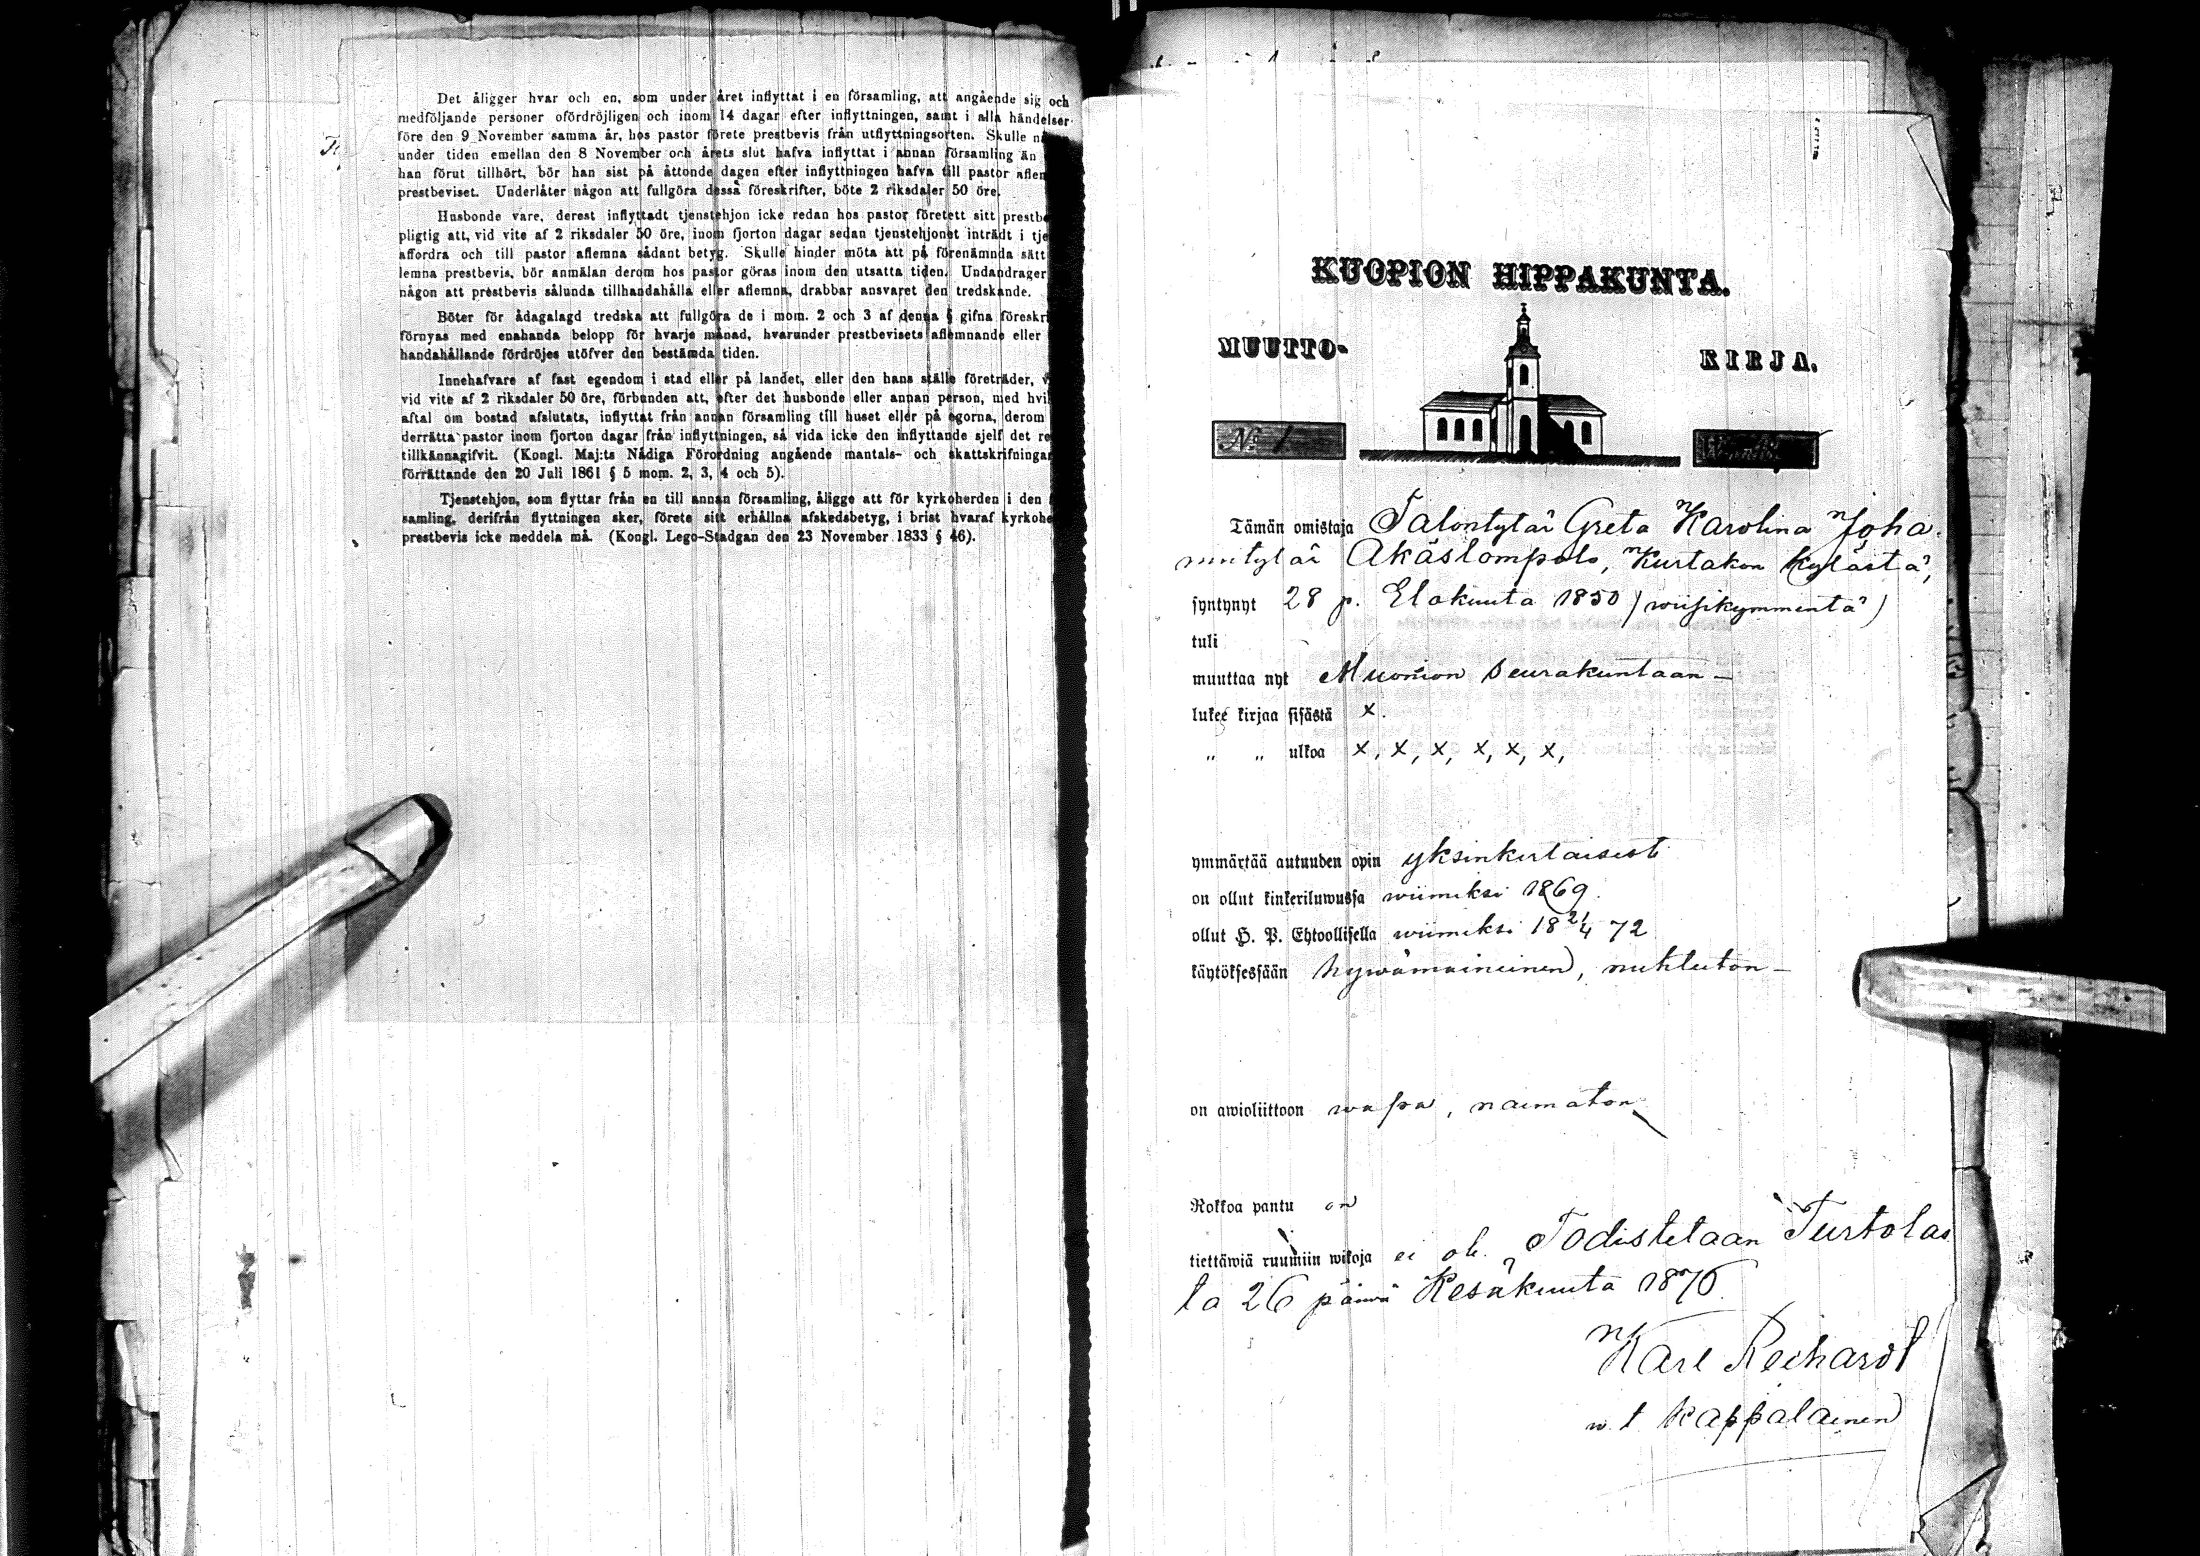 Det åligger hvar och en, som under året inflyttat i en församling, att angående sig och
medföljande personer ofördröjligen och inom 14 dagar efter inflyttningen, samt i alla händelser
före den 9 November samma år, hos pastor förete prestbevis från utflyttningsorten. Skulle
under tiden emellan den 8 November och årets slut hafva inflyttat i annan församling än
han förut tillhört, bör han sist på åttonde dagen efter inflyttningen hafva till pastor
prestbeviset. Underlåter någon att fullgöra dessa föreskrifter, böte 2 riksdaler 50 öre.
Husbonde vare, derest inflyttadt tjenstehjon icke redan hos pastor företett sitt
pligtig att, vid vite af 2 riksdaler 50 öre, inom fjorton dagar sedan tjenstehjonet inträdt i
affordra och till pastor aflemna sådant betyg. Skulle hinder möta att på förenämnda sätt
lemna prestbevis, bör anmälan derom hos pastor göras inom den utsatta tiden. Undandrager
någon att prestbevis sålunda tillhandahålla eller aflemna, drabbar ansvaret den tredskande.
Böter för ådagalagd tredska att fullgöra de i mom. 2 och 3 af denna § gifna
förnyas med enahanda belopp för hvarje månad, hvarunder prestbevisets aflemnande eller
handahållande fördröjes utöfver den bestämda tiden.
Innehafvare af fast egendom i stad eller på landet, eller den hans ställe företräder,
vid vite af 2 riksdaler 50 öre, förbunden att, efter det husbonde eller annan person, med
aftal om bostad afslutats, inflyttat från annan församling till huset eller på egorna, derom
derrätta pastor inom fjorton dagar från inflyttningen, så vida icke den inflyttande sjelf det
tillkännagifvit. (Kongl. Maj:ts Nådiga Förordning angående mantals- och
förrättande den 20 Juli 1861 § 5 mom. 2, 3, 4 och 5).
Tjenstehjon, som flyttar från en till annan församling, åligge att för kyrkoherden i den
samling, derifrån flyttningen sker, förete sitt erhållna afskedsbetyg, i brist hvaraf
prestbevis icke meddela må. (Kongl. Lego-Stadgan den 23 November 1833 § 46).
KUOPION HIPPAKUNTA.
MUUTTO- KIRJA.
No 1
Tämän omistaja Talontytär Greta Karolina Joha
nnntytär Äkäslompolo, Kurtakon kylästä,
syntynyt 28 p. Elokuuta 1850 (wiisikymmentä)
tuli
muuttaa nyt Muonion Seurakuntaan –
lukee kirjaa sisästä x.
" " ulkoa x, x, x, x, x, x,
ymmärtää autuuden opin yksinkertaisesti
on ollut kinkeriluwussa wiimeksi 1869.
ollut H. P. Ehtoollisella wiimeksi 18 21/4 72
käytöksessään hywämaineinen, nuhteeton –
on awioliittoon wapa, naimaton
Rokkoa pantu on
tiettäwiä ruumiin wikoja ei ole. Todistetaan Turtolas
ta 26 päiwä Kesäkuuta 1876
Karl Reichard
w. t. kappalainen